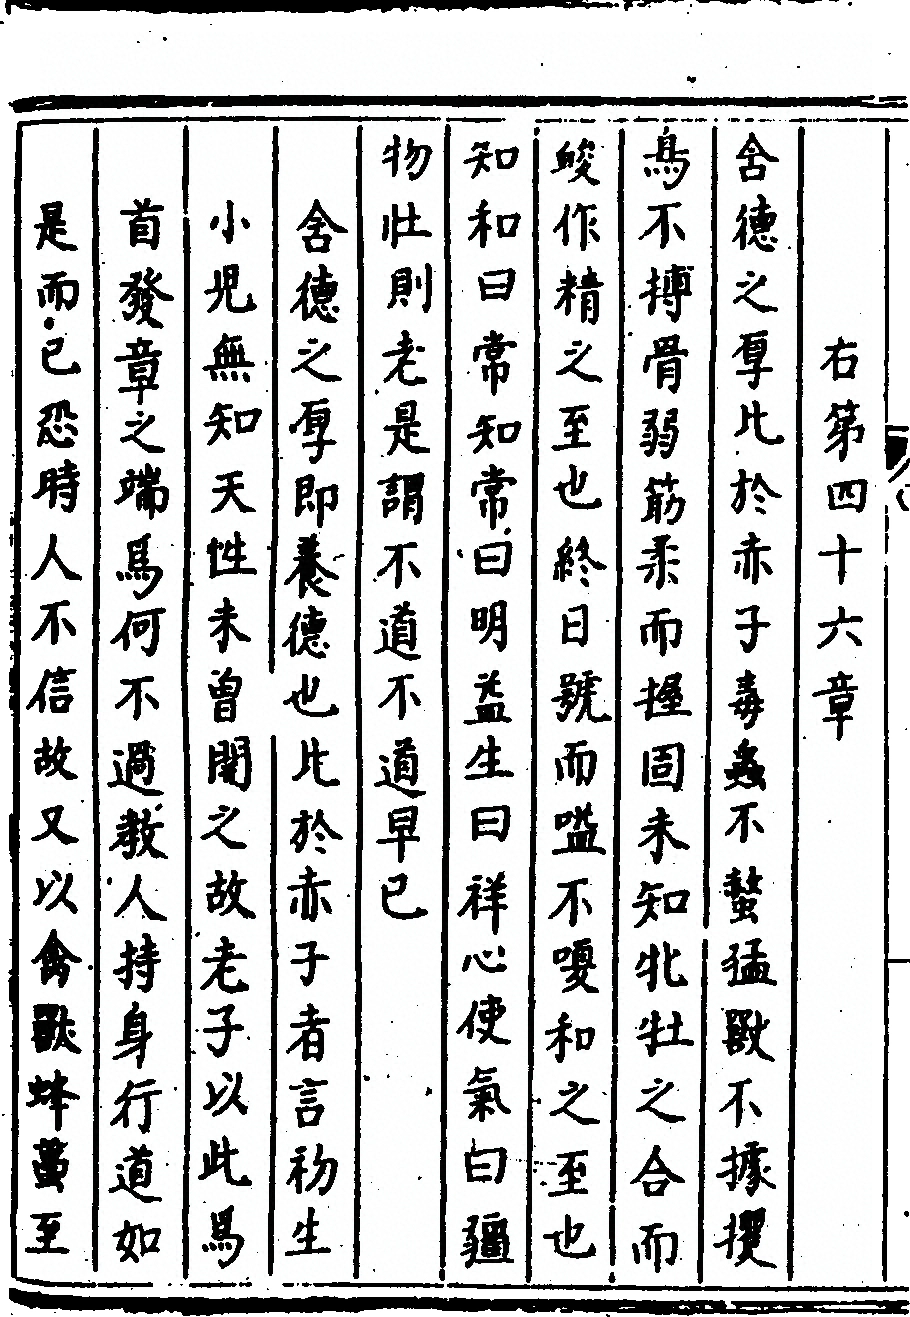 右第四十六章
含德之厚比於赤子毒蟲不螫猛獸不據攫
鳥不搏骨弱筋柔而握固未知牝牡之合而
䘒作精之至也終日號而嗌不嗄和之至也
知和曰常知常曰明益生曰祥心使氣曰彊
物壯則老是謂不道不道早已
含德之厚即養德也比於赤子者言初生
小兒無知天性未曾開之故老子以此爲
首發章之端爲何不過教人持身行道如
是而已恐時人不信故又以禽獸蜂蠆至